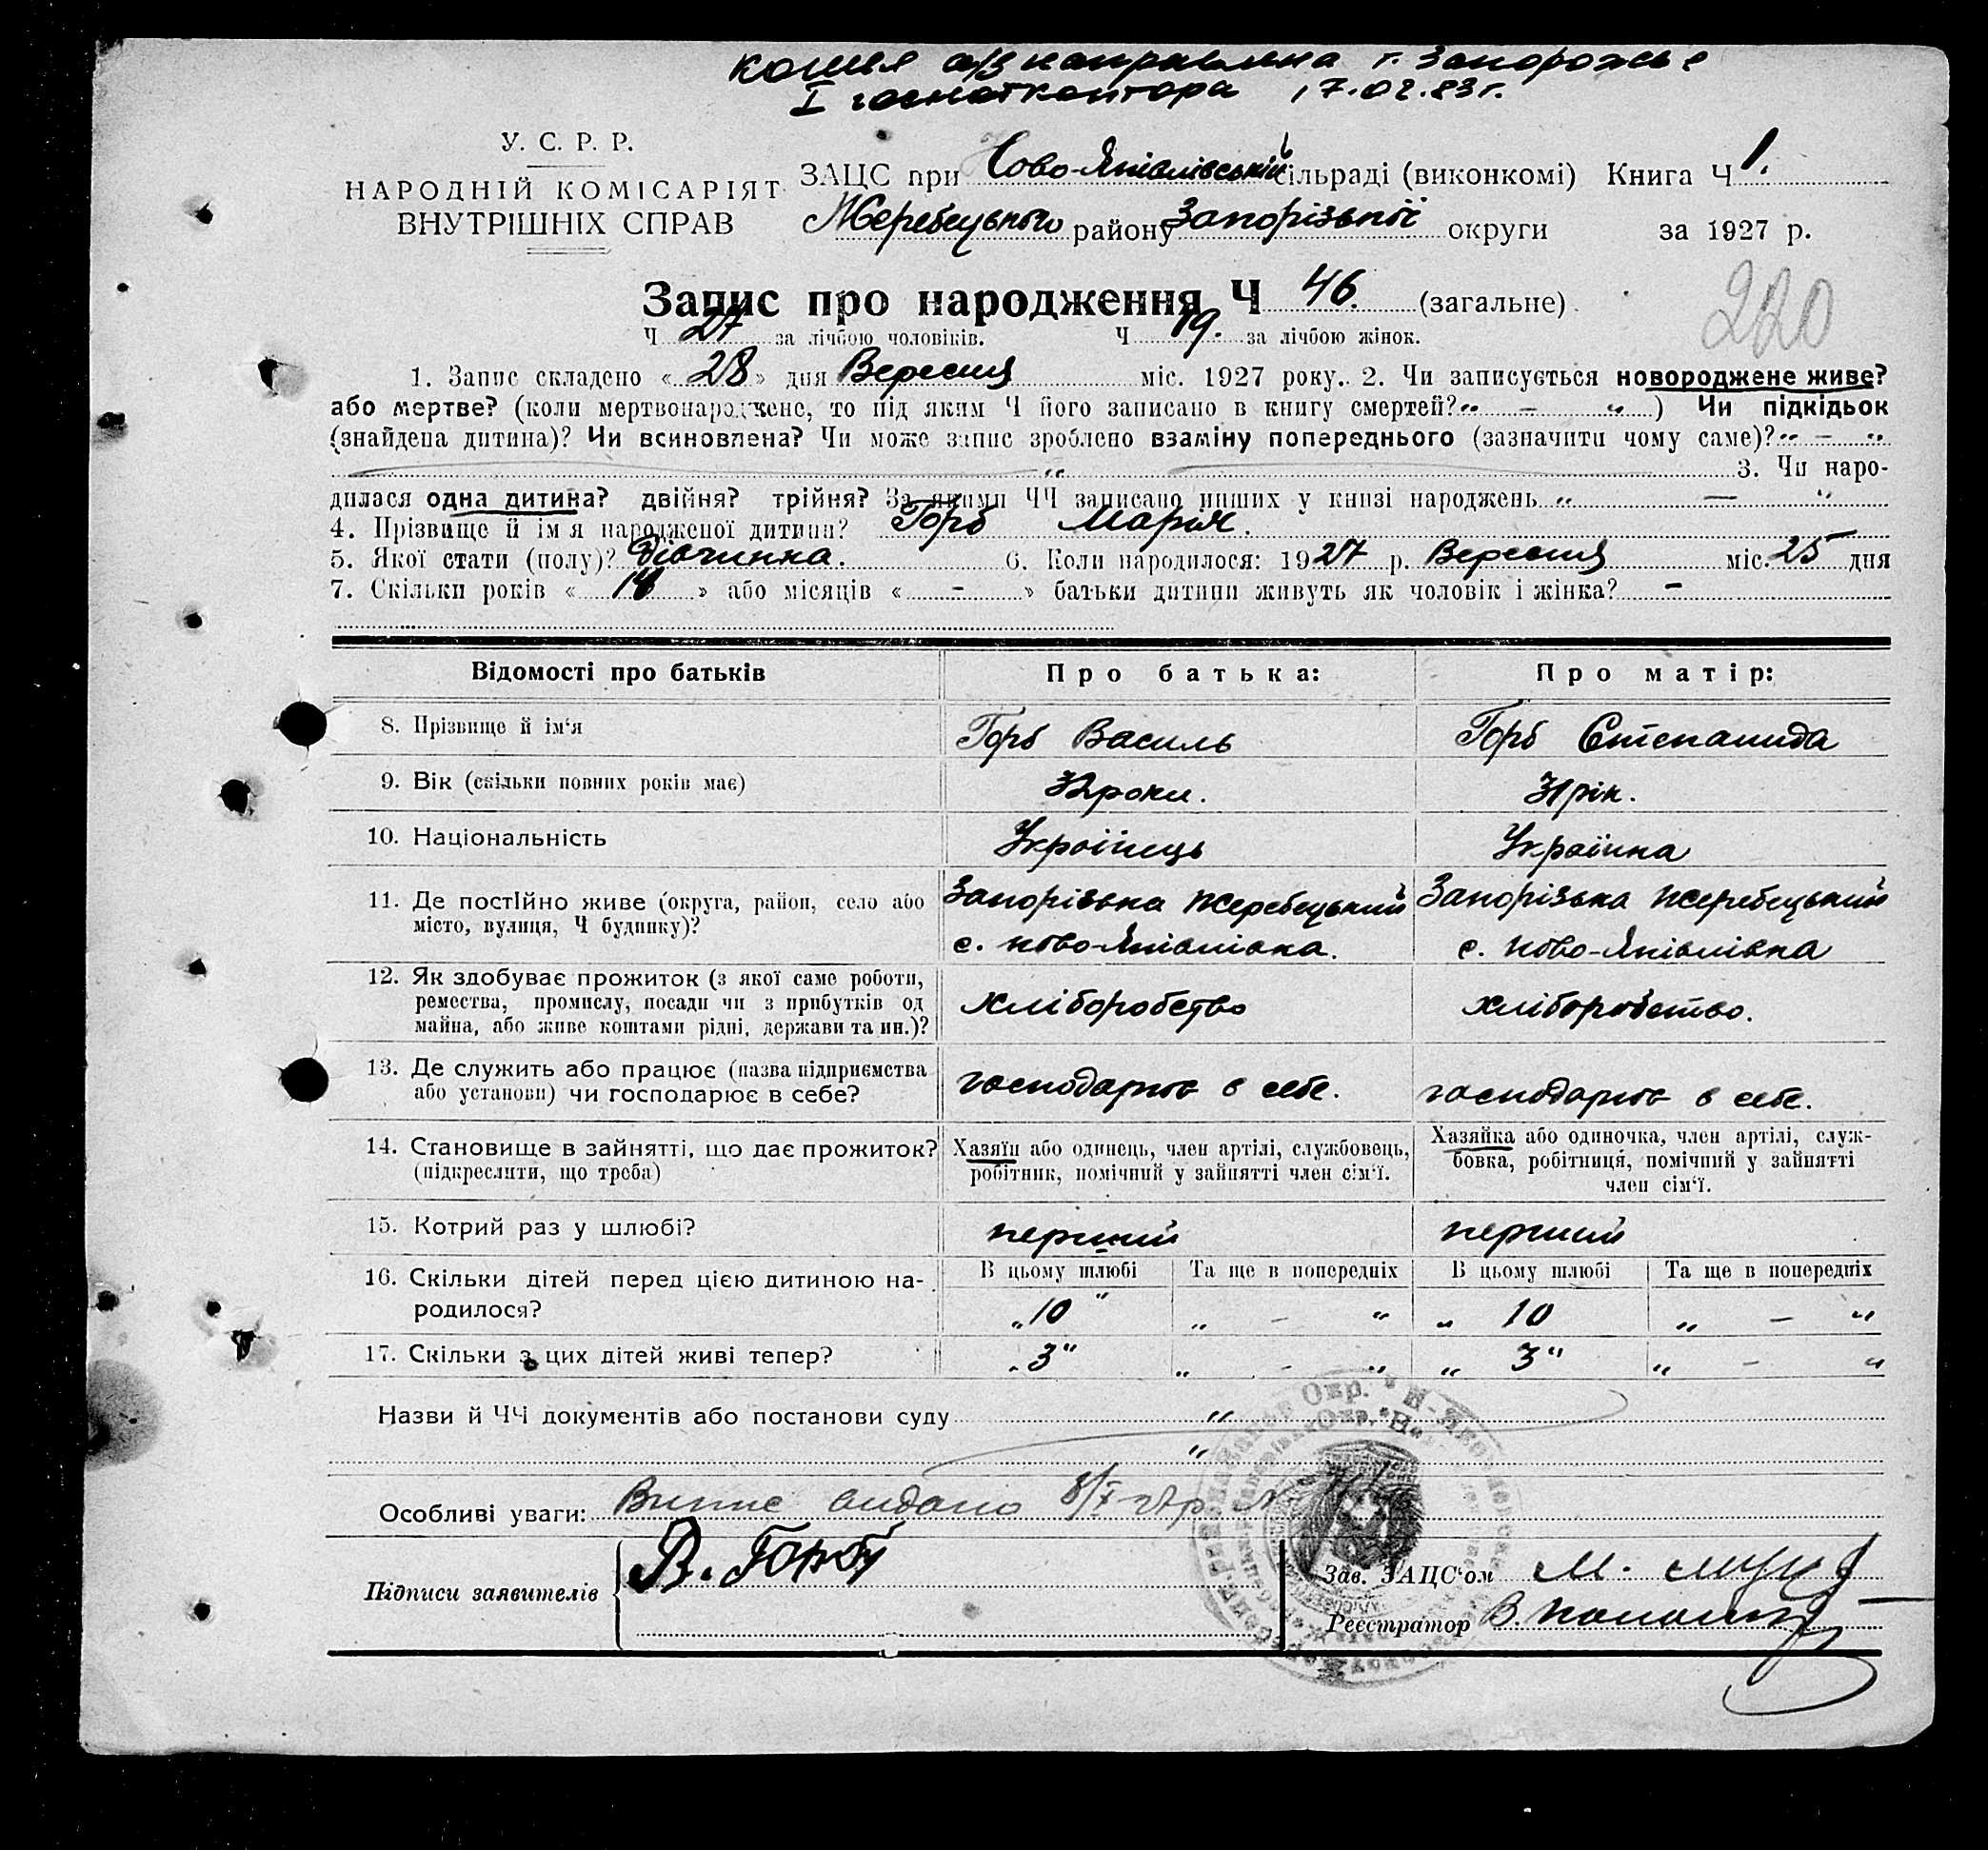 копия а/з направлена г. Запорожье
I госнотконтора 17.02.83 г.
У. С. Р. Р.
НАРОДНІЙ КОМІСАРІЯТ
ВНУТРІШНІХ СПРАВ
ЗАЦС при Ново-Яківлівській сільраді (виконкомі) Книга Ч 1.
Жеребецького району Запорізької округи за 1927 р.
Запис про народження Ч 46. (загальне).
220
Ч 27 за лічбою чоловіків. Ч 19. за лічбою жінок.
1. Запис складено « 28 » дня Вересня міс. 1927 року. 2. Чи записується новороджене живе?
або мертве? (коли мертвонароджене, то під яким Ч його записано в книгу смертей? „ – “ ) Чи підкідьок
(знайдена дитина)? Чи всиновлена? Чи може запис зроблено взаміну попереднього (зазначити чому саме)? „ – “
„ 3. Чи наро-
дилася одна дитина? двійня? трійня? За якими ЧЧ записано инших у книзі народжень „ — “
4. Прізвище й ім'я народженої дитини? Горб Марія.
5. Якої стати (полу)? Дівчинка. 6. Коли народилося: 1927 р. Вересня міс. 25 дня
7. Скільки років « 14 » або місяців « - » батьки дитини живуть як чоловік і жінка? –
Відомості про батьків Про батька: Про матір:
8. Прізвище й ім'я Горб Василь Горб Степанида
9. Вік (скільки повних років має) 32 роки. 31 рік.
10. Національність Українець Українка
11. Де постійно живе (округа, район, село або Запорізька Жеребецький Запорізька Жеребецький
місто, вулиця, Ч будинку)? с. Ново-Яківлівка. с. Ново-Яківлівка
12. Як здобуває прожиток (з якої саме роботи,
ремества, промислу, посади чи з прибутків од хліборобство хліборобство.
майна, або живе коштами рідні, держави та ин.)?
13. Де служить або працює (назва підприємства
або установи) чи господарює в себе? господарює в себе. господарює в себе.
14. Становище в зайнятті, що дає прожиток? Хазяїн або одинець, член артілі, службовець, Хазяйка або одиночка, член артілі, служ-
(підкреслити, що треба) робітник, помічний у зайнятті член сім'ї. бовка, робітниця, помічний у зайнятті
член сім'ї.
15. Котрий раз у шлюбі? перший перший
16. Скільки дітей перед цією дитиною на- В цьому шлюбі Та ще в попередніх В цьому шлюбі Та ще в попередніх
родилося? „ 10 “ „ – “ „ 10 „ – “
17. Скільки з цих дітей живі тепер? „ 3 “ „ - „ „ 3 “ „ – “
Назви й ЧЧ документів або постанови суду „
„
Особливі уваги: Випис видано 8/X-27р. №
Підписи заявителів В. Горб
Зав. ЗАЦС'ом М.
Реєстратор В.